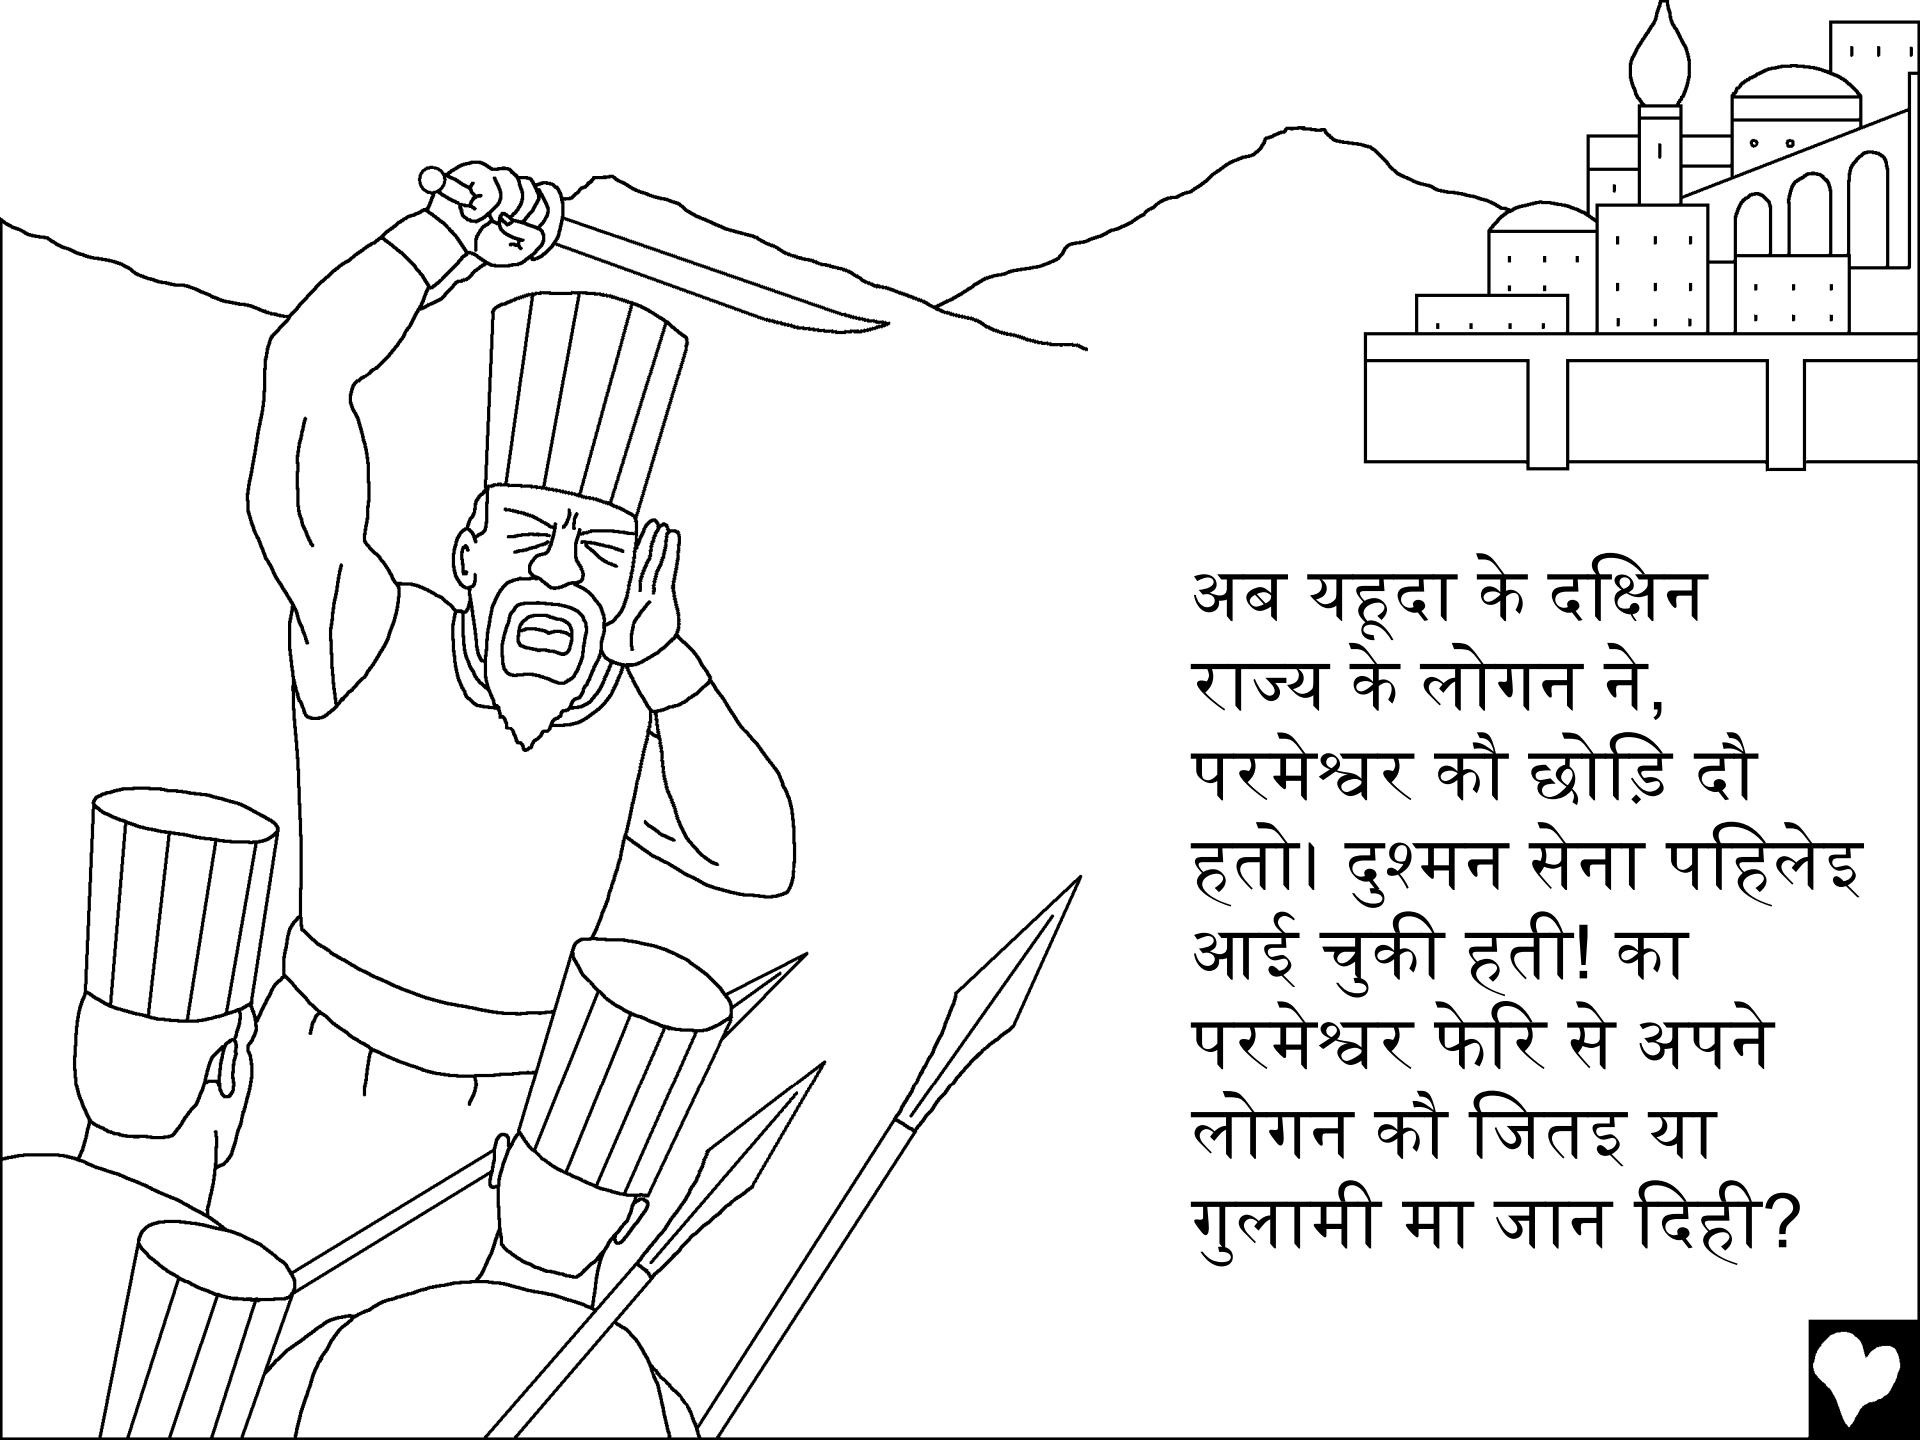 अब यहूदा के दक्षिन
राज्य के लोगन ने,
परमेश्वर कौ छोड़ि दौ
हतो। दुश्मन सेना पहिलेइ
आई चुकी हती! का
परमेश्वर फेरि से अपने
लोगन कौ जितइ या
गुलामी मा जान दिही?